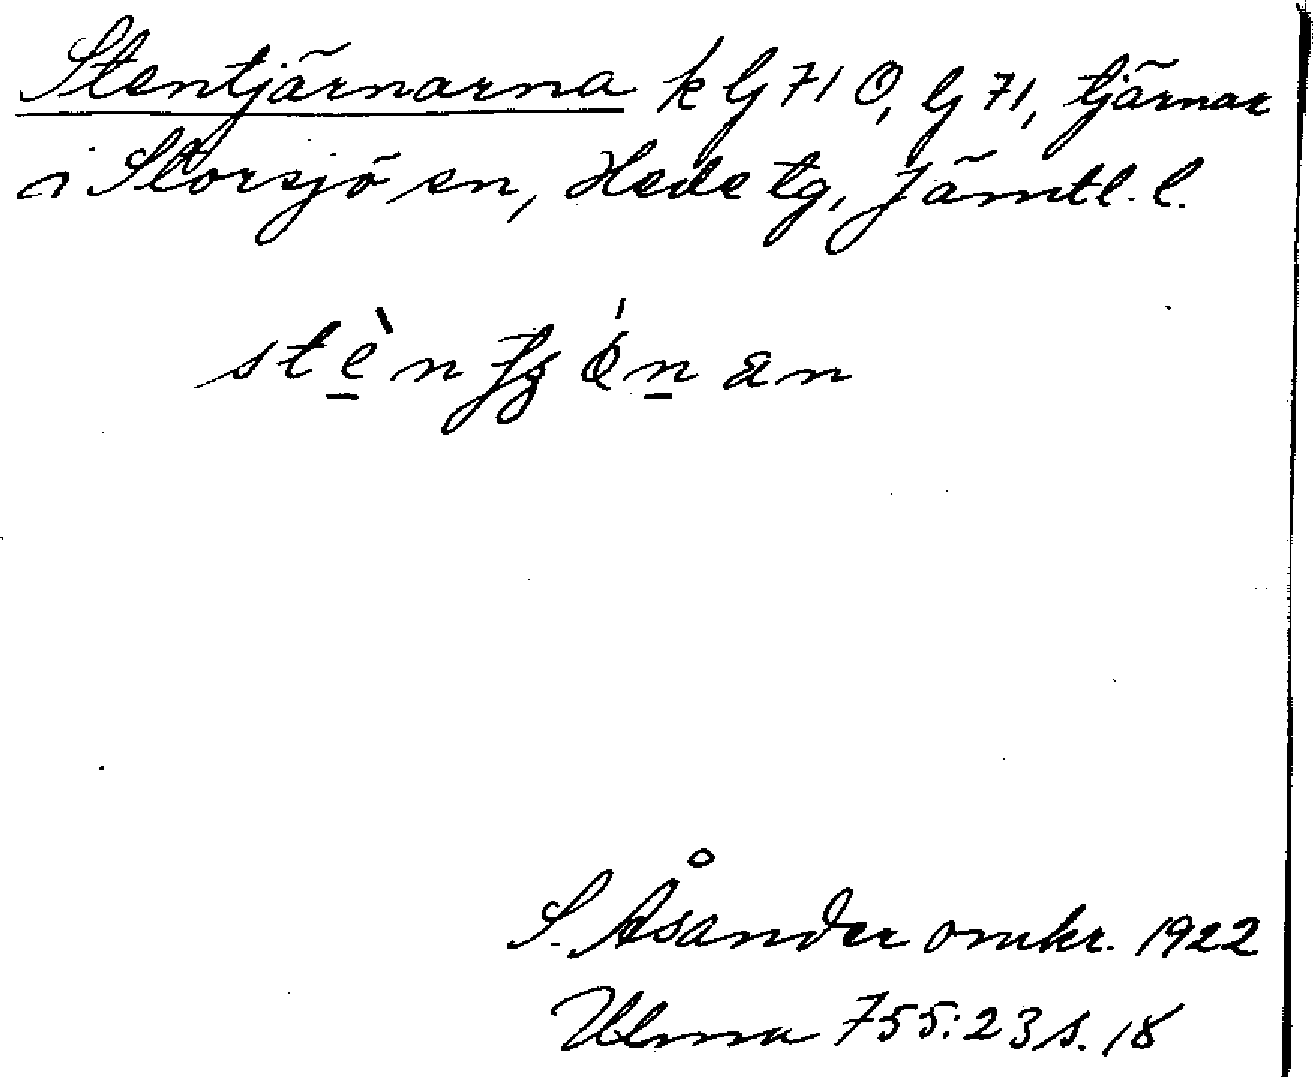 Stentjärnarna k G 71 O, G 71, tjärnar
i Storsjö sn, Hede tg, Jämtl. l.
S. Åsander omkr. 1922
Ulma 755:23 s. 18